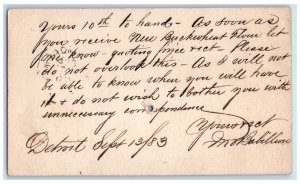 Yours 10th to hand - As soon as
you receive New Buckwheat Flour let
me know - quoting price &ct. Please
do not overlook this - As I will not
be able to know when you will have
it & do not wish to bother you with
unnecessary correspondence
Yours &ct
Detroit Sept 13/83